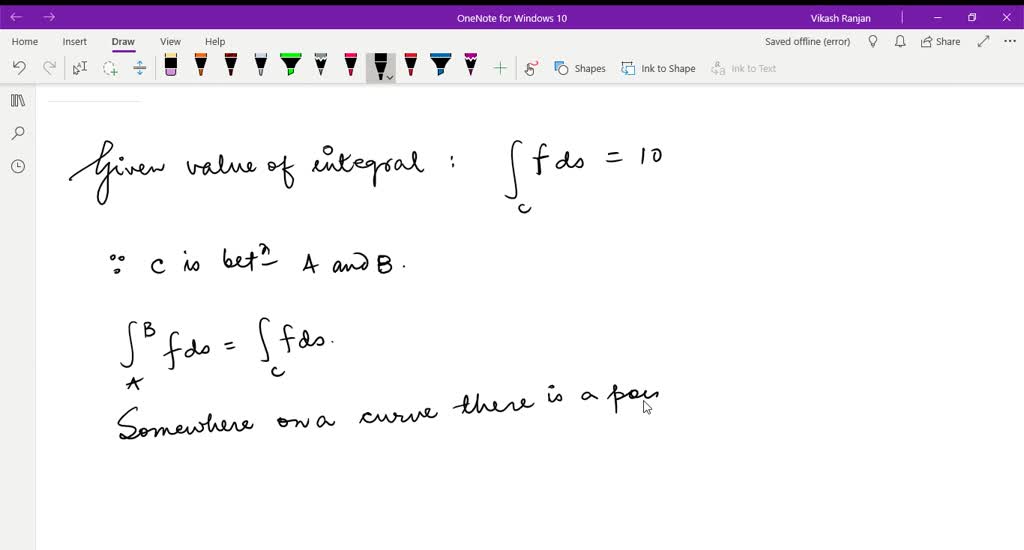 OneNote for Windows 10
Vikash Ranjan
Home Insert Draw View Help
Saved offline (error)
Share
Shapes
Ink to Shape
Ink to Text
Given value of integral : ∫_C f ds = 10
∵ C is betⁿ A and B.
∫_A^B f ds = ∫_C f ds.
Somewhere on a curve there is a poin